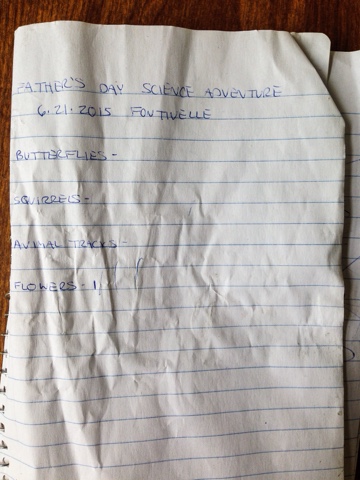 FATHER'S DAY SCIENCE ADVENTURE
6.21.2015 FONTINELLE
BUTTERFLIES -
SQUIRRELS -
ANIMAL TRACKS -
FLOWERS - 1